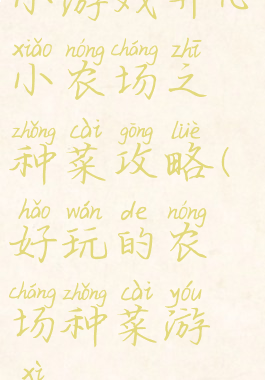 xiǎo nóng cháng zhī
小农场之
zhǒng cài gōng lüè
种菜攻略(
hǎo wán de nóng
好玩的农
cháng zhǒng cài yóu
场种菜游
xì